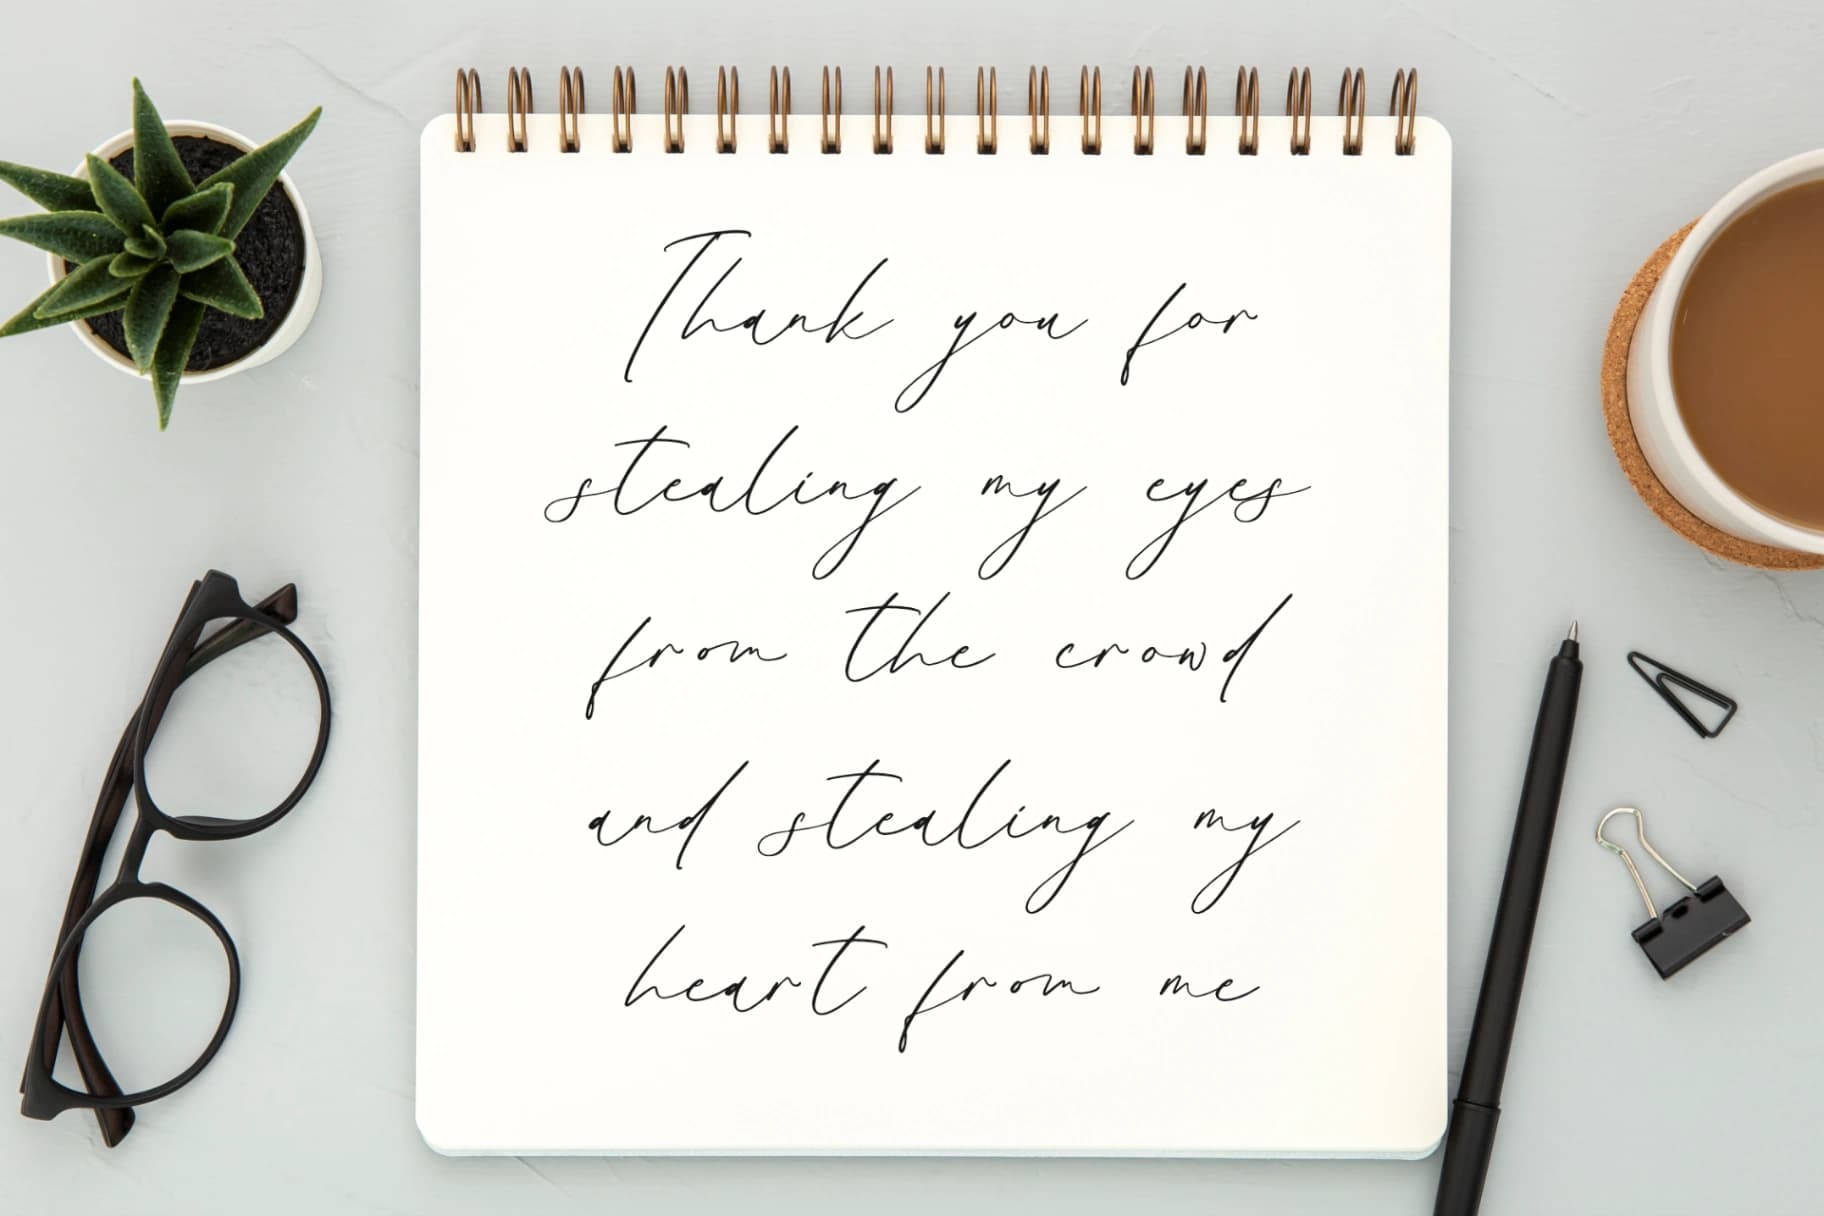 Thank you for
stealing my eyes
from the crowd
and stealing my
heart from me